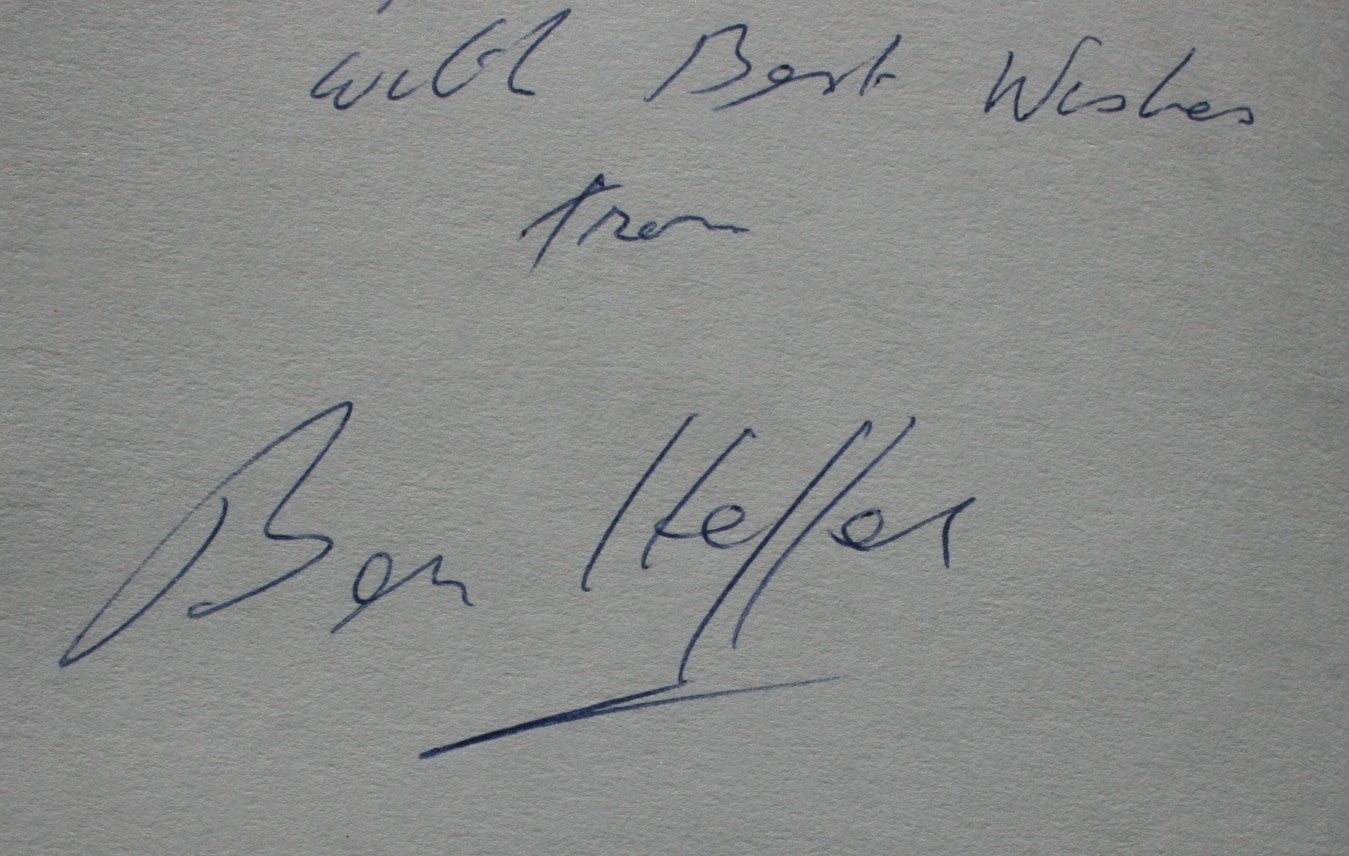 with Best Wishes
from
Ben Heffer